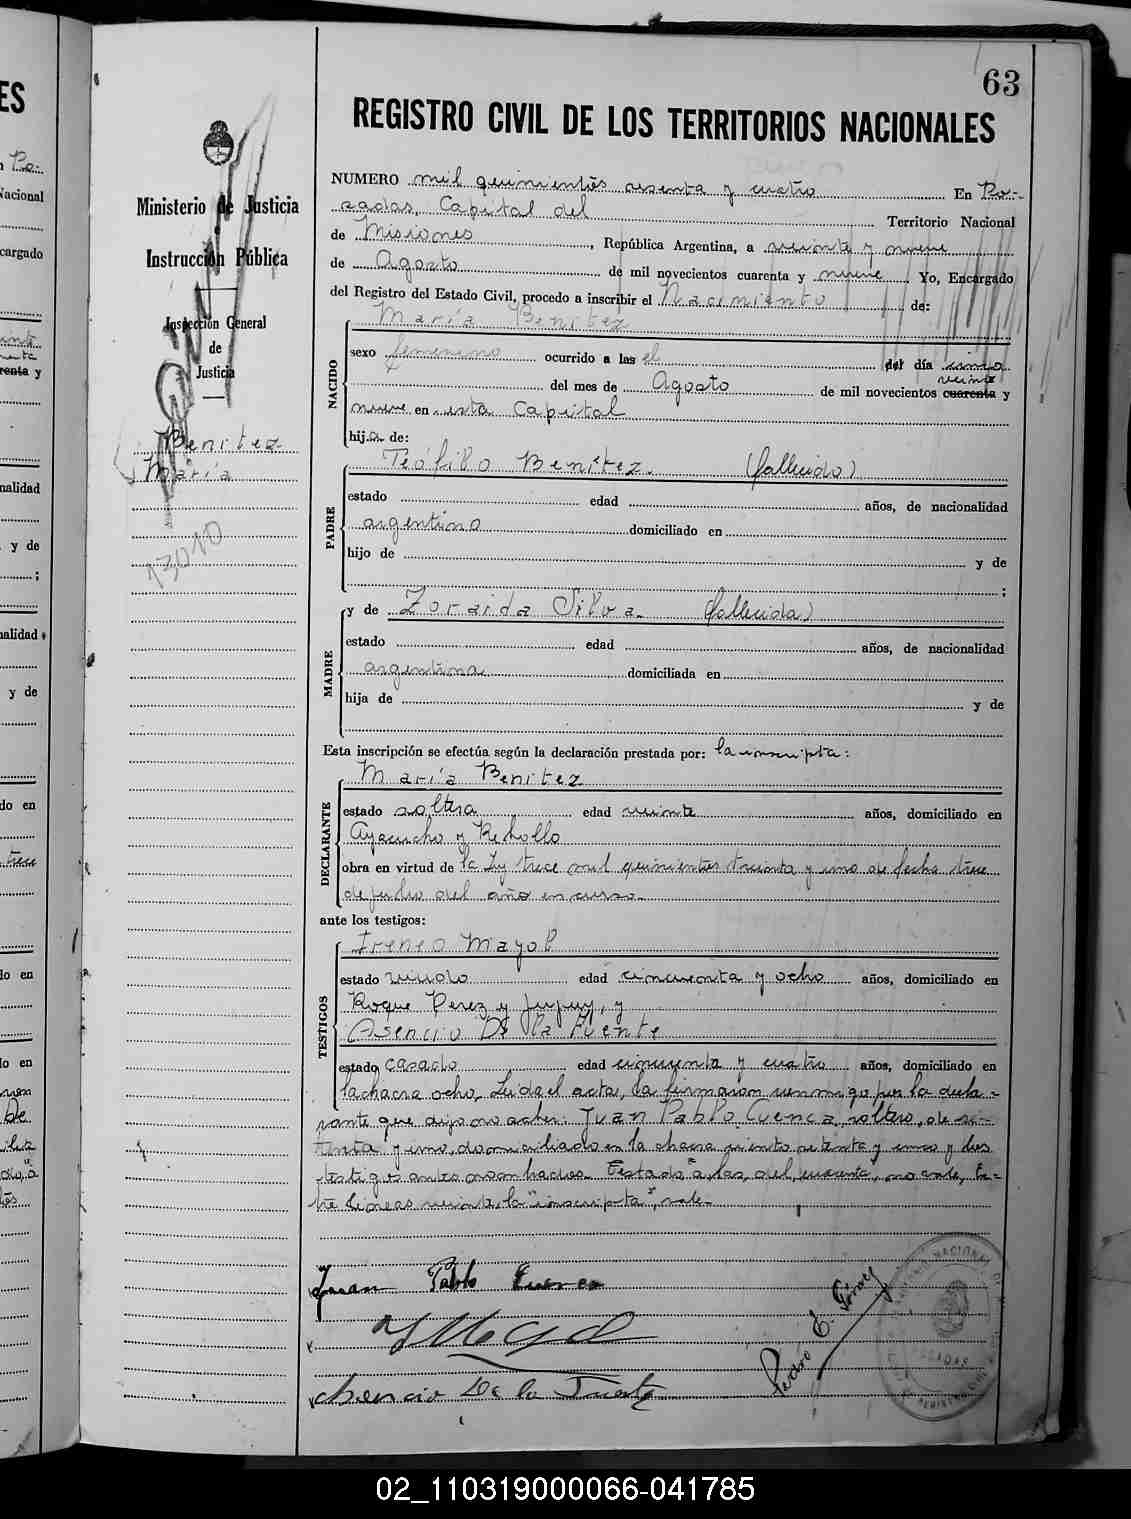 63
REGISTRO CIVIL DE LOS TERRITORIOS NACIONALES
Ministerio de Justicia
Instrucción Pública
Inspección General
de
Justicia
Benitez
María
13010
NUMERO mil quinientos sesenta y cuatro En Po-
sadas, Capital del Territorio Nacional
de Misiones, República Argentina, a veinte y nueve
de Agosto de mil novecientos cuarenta y nueve. Yo, Encargado
del Registro del Estado Civil, procedo a inscribir el Nacimiento de:
María Benitez
NACIDO
sexo femenino ocurrido a las el del día cinco
veinte
del mes de Agosto de mil novecientos cuarenta y
nueve en esta Capital
hija de:
PADRE
Teófilo Benítez. (fallecido)
estado edad años, de nacionalidad
argentino domiciliado en
hijo de y de
;
MADRE
y de Zoraida Silva. (fallecida)
estado edad años, de nacionalidad
argentina domiciliada en
hija de y de
Esta inscripción se efectúa según la declaración prestada por: la inscripta:
DECLARANTE
María Benitez
estado soltera edad veinte años, domiciliado en
Ayacucho y
obra en virtud de la Ley trece mil quinientos treinta y uno de fecha trece
de Julio del año en curso.
ante los testigos:
TESTIGOS
Ireneo Mayol
estado viudo edad cincuenta y ocho años, domiciliado en
Roque Perez y Jujuy, y
Asencio De la Fuente
estado casado edad cincuenta y cuatro años, domiciliado en
la chacra ocho. Leida el acta, la firmaron conmigo por la decla-
rante que dijo no saber: Juan Pablo Cuenca, soltero, de
y uno, domiciliado en la chacra ciento setenta y cinco y los
testigos antes nombrados. Testado "a las, del, cuarenta, no vale, En-
tre lineas veinte, la "inscripta", vale.
Juan Pablo Cuenca
Asencio De la Fuente
Pedro E.
POSADAS
02_110319000066-041785